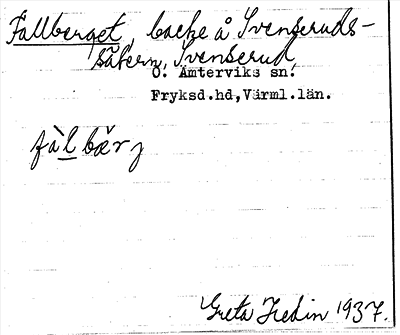 Fallberget, backe å Svenseruds-
sätern, Svenserud,
Ö. Ämterviks sn.
Fryksd.hd,Värml.län.
fàl bær j
Greta Hedin 1937.